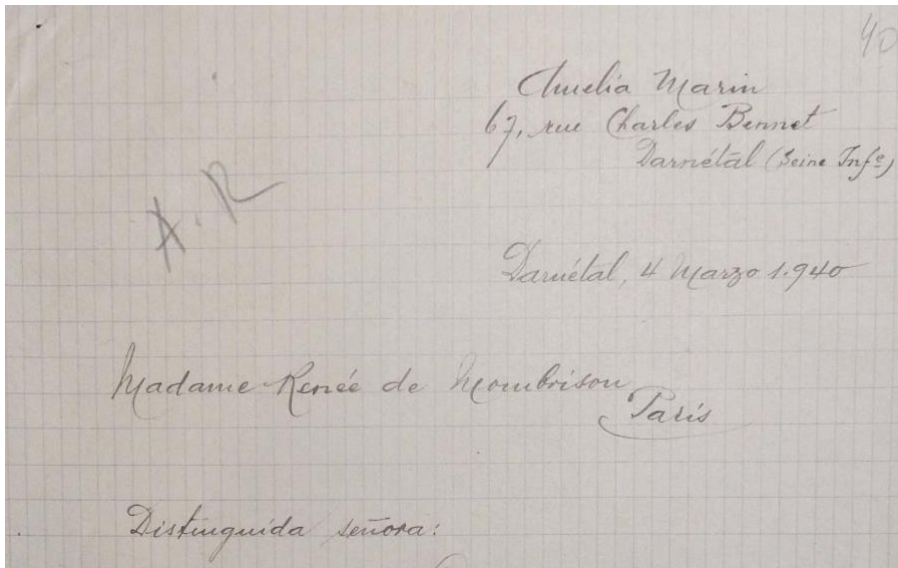 40
Amelia Marin
67, rue Charles Bennet
Darnétal (Seine Infe)
A.R
Darnétal, 4 Marzo 1.940
Madame Renée de Mombrison
París
Distinguida señora: